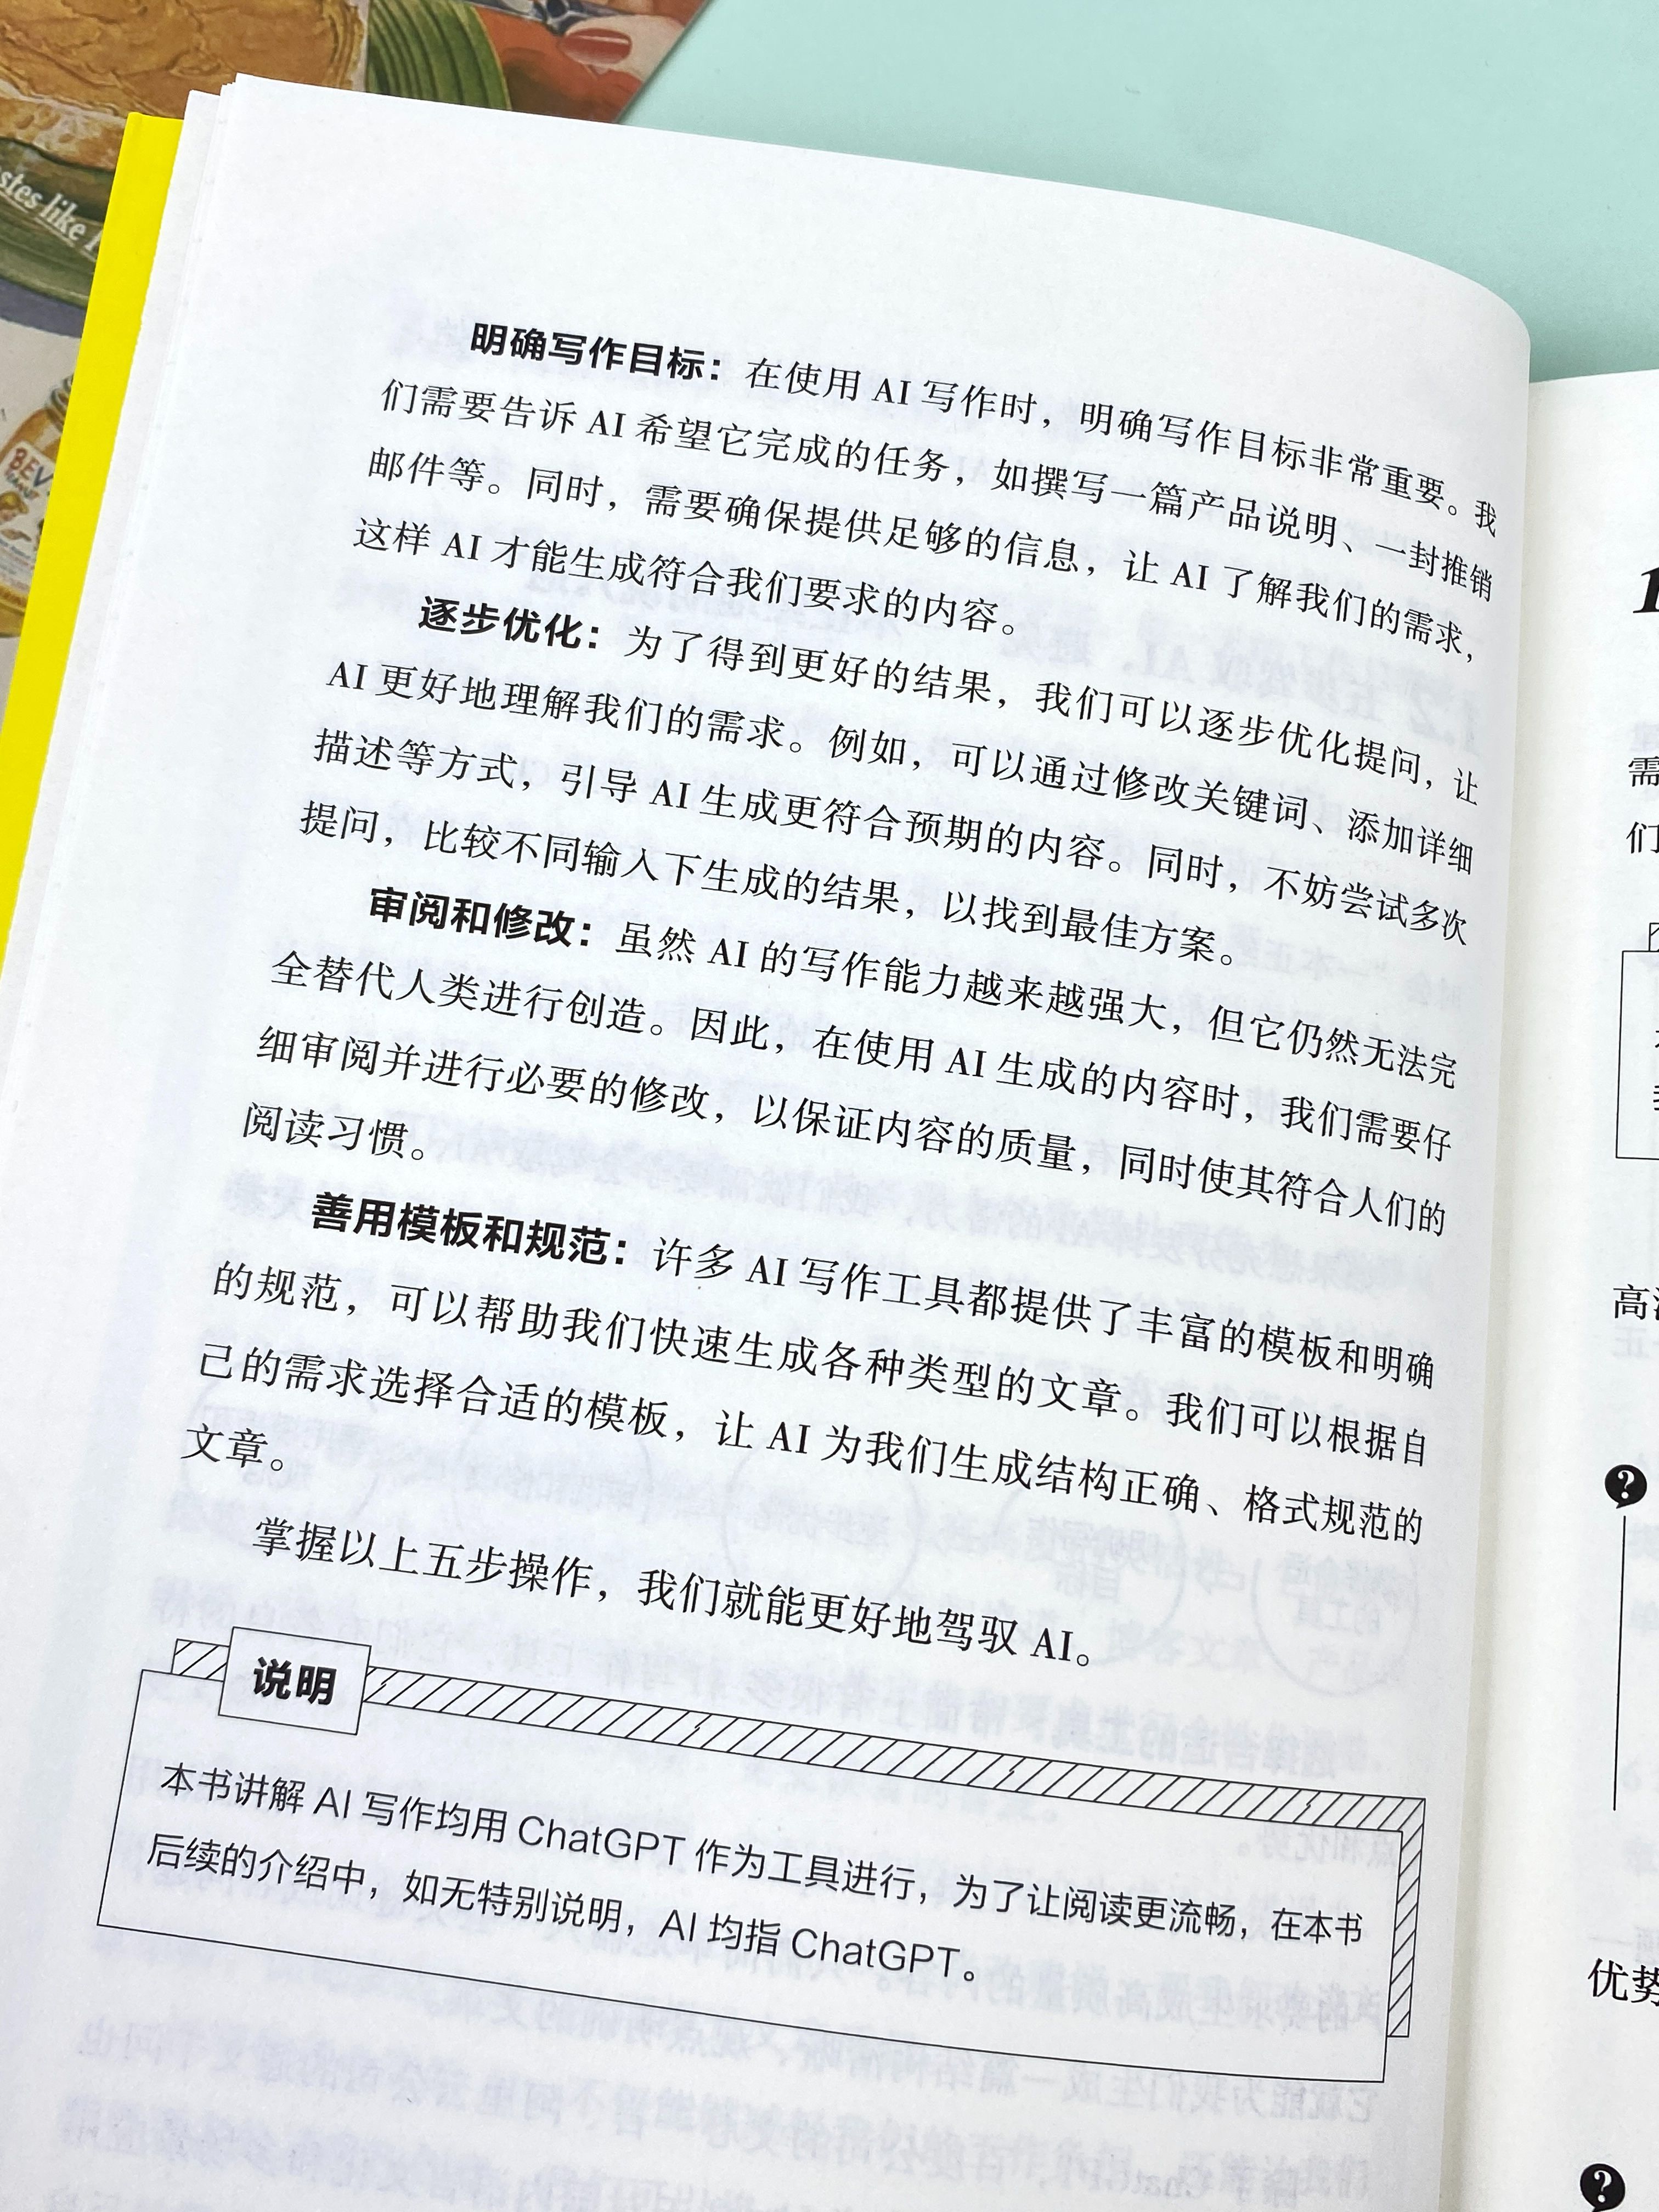 stes like
BEV
明确写作目标：在使用 AI 写作时，明确写作目标非常重要。我
们需要告诉 AI 希望它完成的任务，如撰写一篇产品说明、一封推销
邮件等。同时，需要确保提供足够的信息，让 AI 了解我们的需求，
这样 AI 才能生成符合我们要求的内容。
逐步优化：为了得到更好的结果，我们可以逐步优化提问，让
AI 更好地理解我们的需求。例如，可以通过修改关键词、添加详细
描述等方式，引导 AI 生成更符合预期的内容。同时，不妨尝试多次
提问，比较不同输入下生成的结果，以找到最佳方案。
审阅和修改：虽然 AI 的写作能力越来越强大，但它仍然无法完
全替代人类进行创造。因此，在使用 AI 生成的内容时，我们需要仔
细审阅并进行必要的修改，以保证内容的质量，同时使其符合人们的
阅读习惯。
善用模板和规范：许多 AI 写作工具都提供了丰富的模板和明确
的规范，可以帮助我们快速生成各种类型的文章。我们可以根据自
己的需求选择合适的模板，让 AI 为我们生成结构正确、格式规范的
文章。
掌握以上五步操作，我们就能更好地驾驭 AI。
说明
本书讲解 AI 写作均用 ChatGPT 作为工具进行，为了让阅读更流畅，在本书
后续的介绍中，如无特别说明，AI 均指 ChatGPT。
1
需
们
高
?
优势
?